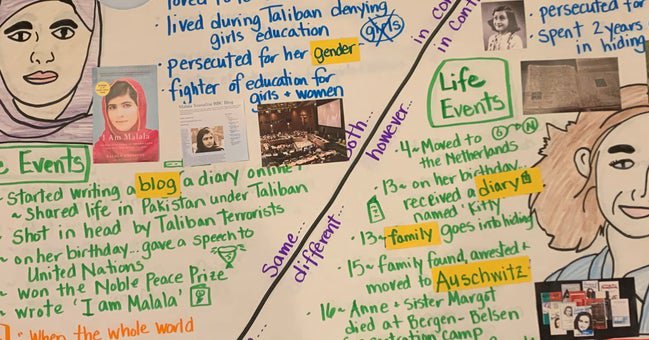 loved to le
· lived during Taliban denying
girls education
girls
· persecuted for her gender
· fighter of education for
girls + women
I Am Malala
Malala Yousafzai BBC Blog
Events
started writing a blog a diary online
~ shared life in Pakistan under Taliban
Shot in head by Taliban terrorists
~ on her birthday...gave a speech to
United Nations
~ won the Noble Peace Prize
~ wrote 'I am Malala'
: When the whole world
Same...
different...
both...
however...
in con
in cont
· persecuted fo
· spent 2 years
in hiding
Life
Events
4~ Moved to
the Netherlands
13~ on her birthday...
received a diary
named 'Kitty'
13~ family goes into hiding
15~ family found, arrested +
moved to Auschwitz
16~ Anne + sister Margot
died at Bergen-Belsen
camp